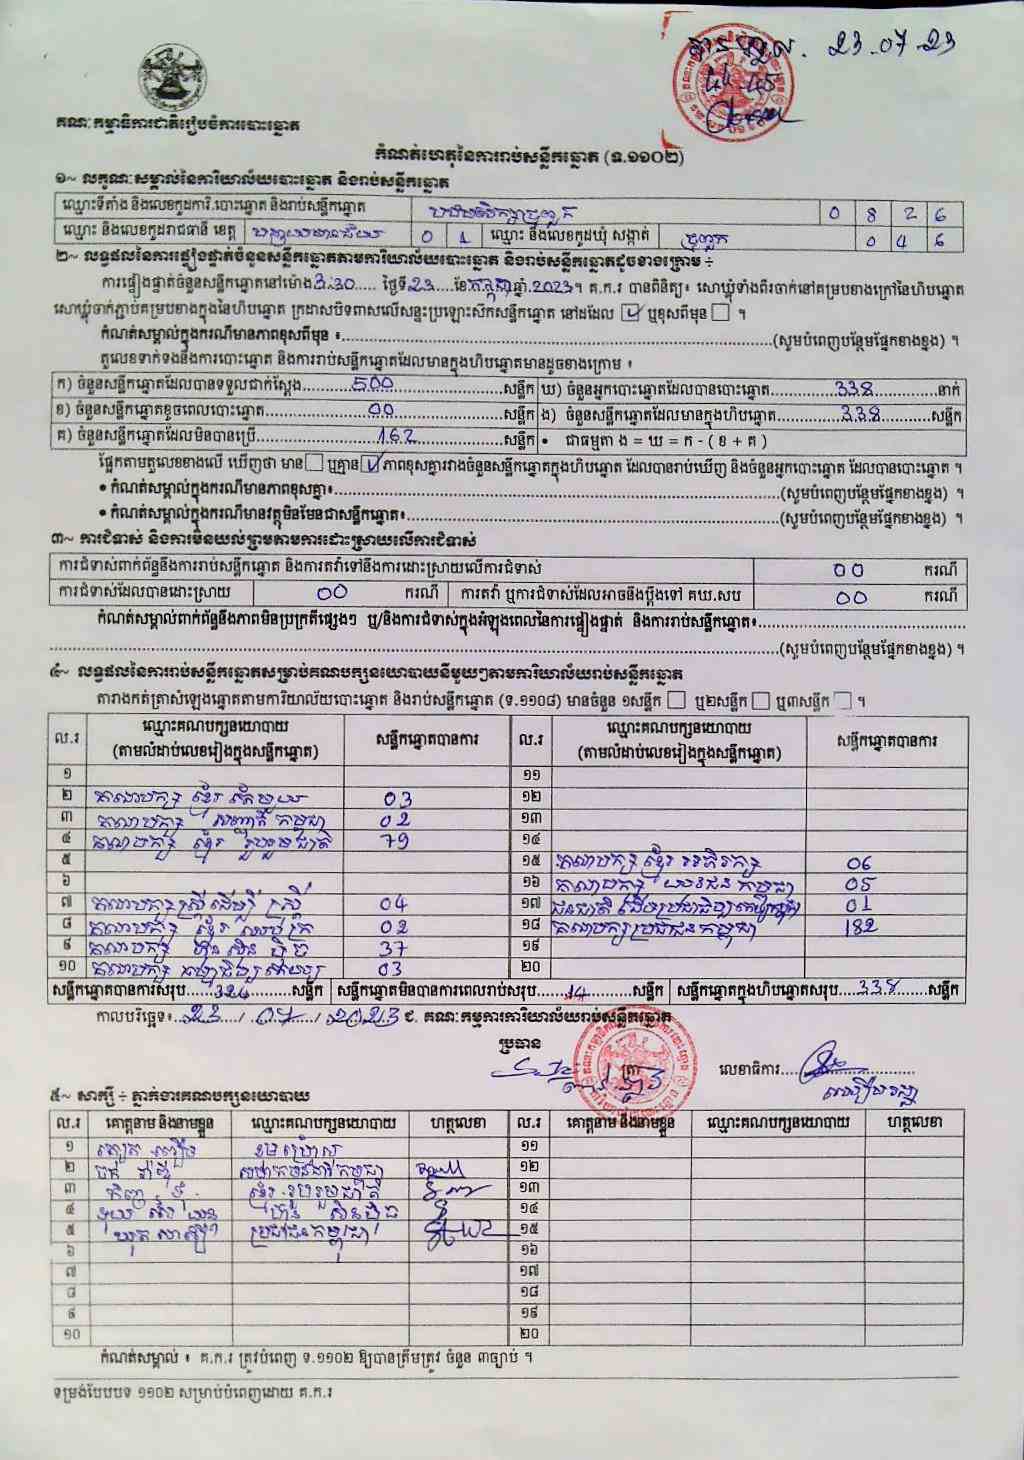 បានចូល. 23.07.23
គណៈកម្មាធិការជាតិរៀបចំការបោះឆ្នោត
កំណត់ហេតុនៃការរាប់សន្លឹកឆ្នោត (ទ.១១០២)
១~ លក្ខណៈសម្គាល់នៃការិយាល័យបោះឆ្នោត និងរាប់សន្លឹកឆ្នោត
ឈ្មោះទីតាំង និងលេខកូដការិ.បោះឆ្នោត និងរាប់សន្លឹកឆ្នោត 0 8 2 6
ឈ្មោះ និងលេខកូដរាជធានី ខេត្ត បន្ទាយមានជ័យ 0 1 ឈ្មោះ និងលេខកូដឃុំ សង្កាត់ 0 4 6
២~ លទ្ធផលនៃការផ្ទៀងផ្ទាត់ចំនួនសន្លឹកឆ្នោតតាមការិយាល័យបោះឆ្នោត និងរាប់សន្លឹកឆ្នោតដូចខាងក្រោម ÷
ការផ្ទៀងផ្ទាត់ចំនួនសន្លឹកឆ្នោតនៅម៉ោង 3:30 ថ្ងៃទី 23 ខែ កក្កដា ឆ្នាំ 2023 ។ គ.ក.រ បានពិនិត្យ៖ សោឃ្លុំទាំងពីរចាក់នៅគម្របខាងក្រៅនៃហិបឆ្នោត
សោឃ្លុំចាក់ភ្ជាប់គម្របខាងក្នុងនៃហិបឆ្នោត ក្រដាសបិទពាសលើសន្ទះប្រឡោះសិកសន្លឹកឆ្នោត នៅដដែល ☑ ឬខុសពីមុន ☐ ។
កំណត់សម្គាល់ក្នុងករណីមានភាពខុសពីមុន ៖ (សូមបំពេញបន្ថែមផ្នែកខាងខ្នង) ។
តួលេខទាក់ទងនឹងការបោះឆ្នោត និងការរាប់សន្លឹកឆ្នោតដែលមានក្នុងហិបឆ្នោតមានដូចខាងក្រោម ៖
ក) ចំនួនសន្លឹកឆ្នោតដែលបានទទួលជាក់ស្តែង 500 សន្លឹក ឃ) ចំនួនអ្នកបោះឆ្នោតដែលបានបោះឆ្នោត 338 នាក់
ខ) ចំនួនសន្លឹកឆ្នោតខូចពេលបោះឆ្នោត 00 សន្លឹក ង) ចំនួនសន្លឹកឆ្នោតដែលមានក្នុងហិបឆ្នោត 338 សន្លឹក
គ) ចំនួនសន្លឹកឆ្នោតដែលមិនបានប្រើ 162 សន្លឹក • ជាធម្មតា ង = ឃ = ក - ( ខ + គ )
ផ្អែកតាមតួលេខខាងលើ ឃើញថា មាន ☐ ឬគ្មាន ☑ ភាពខុសគ្នារវាងចំនួនសន្លឹកឆ្នោតក្នុងហិបឆ្នោត ដែលបានរាប់ឃើញ និងចំនួនអ្នកបោះឆ្នោត ដែលបានបោះឆ្នោត ។
• កំណត់សម្គាល់ក្នុងករណីមានភាពខុសគ្នា៖ (សូមបំពេញបន្ថែមផ្នែកខាងខ្នង) ។
• កំណត់សម្គាល់ក្នុងករណីមានវត្ថុមិនមែនជាសន្លឹកឆ្នោត៖ (សូមបំពេញបន្ថែមផ្នែកខាងខ្នង) ។
៣~ ការជំទាស់ និងការមិនយល់ព្រមតាមការដោះស្រាយលើការជំទាស់
ការជំទាស់ពាក់ព័ន្ធនឹងការរាប់សន្លឹកឆ្នោត និងការតវ៉ាទៅនឹងការដោះស្រាយលើការជំទាស់ 00 ករណី
ការជំទាស់ដែលបានដោះស្រាយ 00 ករណី ការតវ៉ា ឬការជំទាស់ដែលអាចនឹងប្តឹងទៅ គឃ.សប 00 ករណី
កំណត់សម្គាល់ពាក់ព័ន្ធនឹងភាពមិនប្រក្រតីផ្សេងៗ ឬ/និងការជំទាស់ក្នុងអំឡុងពេលនៃការផ្ទៀងផ្ទាត់ និងការរាប់សន្លឹកឆ្នោត៖
(សូមបំពេញបន្ថែមផ្នែកខាងខ្នង) ។
៤~ លទ្ធផលនៃការរាប់សន្លឹកឆ្នោតសម្រាប់គណបក្សនយោបាយនីមួយៗតាមការិយាល័យរាប់សន្លឹកឆ្នោត
តារាងកត់ត្រាសំឡេងឆ្នោតតាមការិយាល័យបោះឆ្នោត និងរាប់សន្លឹកឆ្នោត (ទ.១១០៨) មានចំនួន ១សន្លឹក ☐ ឬ២សន្លឹក ☐ ឬ៣សន្លឹក ☐ ។
ល.រ ឈ្មោះគណបក្សនយោបាយ (តាមលំដាប់លេខរៀងក្នុងសន្លឹកឆ្នោត) សន្លឹកឆ្នោតបានការ ល.រ ឈ្មោះគណបក្សនយោបាយ (តាមលំដាប់លេខរៀងក្នុងសន្លឹកឆ្នោត) សន្លឹកឆ្នោតបានការ
១ ១១
២ គណបក្ស ខ្មែរ តែមួយ 03 ១២
៣ គណបក្ស សញ្ជាតិ កម្ពុជា 02 ១៣
៤ គណបក្ស ខ្មែរ រួបរួមជាតិ 79 ១៤
៥ ១៥ គណបក្ស ខ្មែរ អភិរក្ស 06
៦ ១៦ គណបក្ស យុវជន កម្ពុជា 05
៧ គណបក្ស ស្ត្រី ដើម្បី ស្ត្រី 04 ១៧ 01
៨ គណបក្ស ខ្មែរ ឈប់ក្រ 02 ១៨ គណបក្សប្រជាជនកម្ពុជា 182
៩ គណបក្ស ហ៊្វុនស៊ិនប៉ិច 37 ១៩
១០ គណបក្ស 03 ២០
សន្លឹកឆ្នោតបានការសរុប 324 សន្លឹក សន្លឹកឆ្នោតមិនបានការពេលរាប់សរុប 14 សន្លឹក សន្លឹកឆ្នោតក្នុងហិបឆ្នោតសរុប 338 សន្លឹក
កាលបរិច្ឆេទ៖ 23 / 07 / 2023 ជ. គណៈកម្មការការិយាល័យរាប់សន្លឹកឆ្នោត
ប្រធាន
ត្រា លេខាធិការ
៥~ សាក្សី ÷ ភ្នាក់ងារគណបក្សនយោបាយ
ល.រ គោត្តនាម និងនាមខ្លួន ឈ្មោះគណបក្សនយោបាយ ហត្ថលេខា ល.រ គោត្តនាម និងនាមខ្លួន ឈ្មោះគណបក្សនយោបាយ ហត្ថលេខា
១ ១១
២ ១២
៣ ខ្មែរ រួបរួមជាតិ ១៣
៤ ១៤
៥ ប្រជាជនកម្ពុជា ១៥
៦ ១៦
៧ ១៧
៨ ១៨
៩ ១៩
១០ ២០
កំណត់សម្គាល់ ៖ គ.ក.រ ត្រូវបំពេញ ទ.១១០២ ឱ្យបានត្រឹមត្រូវ ចំនួន ៣ច្បាប់ ។
ទម្រង់បែបបទ ១១០២ សម្រាប់បំពេញដោយ គ.ក.រ